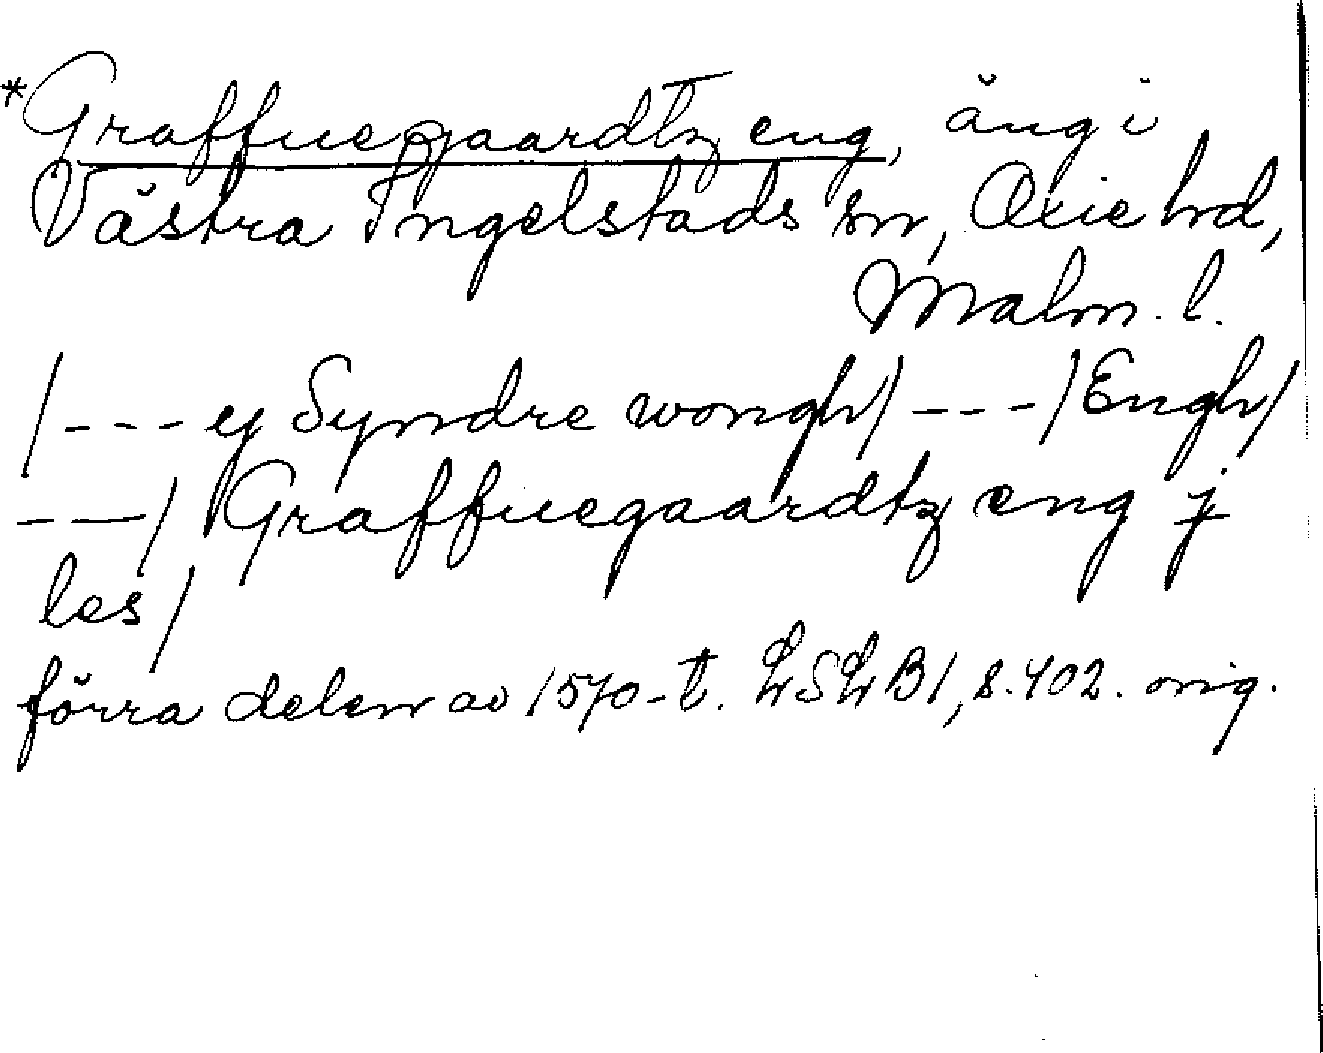 *Graffuegaardtz eng, äng i
Västra Ingelstads sn, Oxie hd,
Malm. l.
/--- ej Syndre wongh/ ---/Engh/
---/ Graffuegaardtz eng j
les/
förra delen av 1570-t. LSLB1, s. 402. orig.